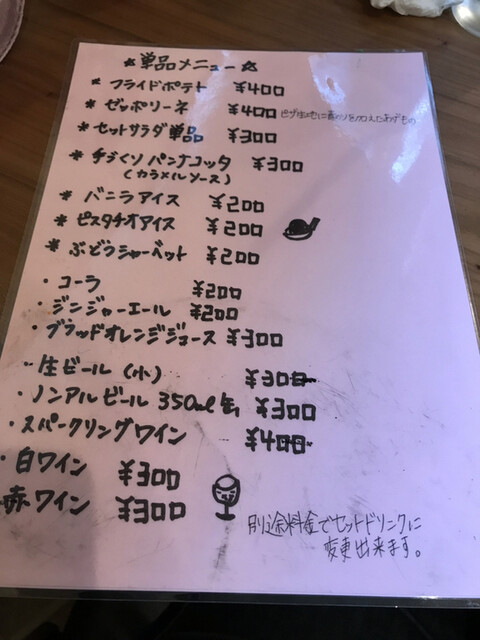 ☆単品メニュー☆
* フライドポテト ¥400
* ゼッポリーネ ¥400 ピザ生地に青のりを加えたあげもの
* セットサラダ単品 ¥300
* 手づくりパンナコッタ ¥300
(カラメルソース)
* バニラアイス ¥200
* ピスタチオアイス ¥200
* ぶどうシャーベット ¥200
・コーラ ¥200
・ジンジャーエール ¥200
・ブラッドオレンジジュース ¥300
・生ビール (小) ¥300
・ノンアルビール 350ml缶 ¥300
・スパークリングワイン ¥400
・白ワイン ¥300
赤ワイン ¥300
別途料金でセットドリンクに
変更出来ます。